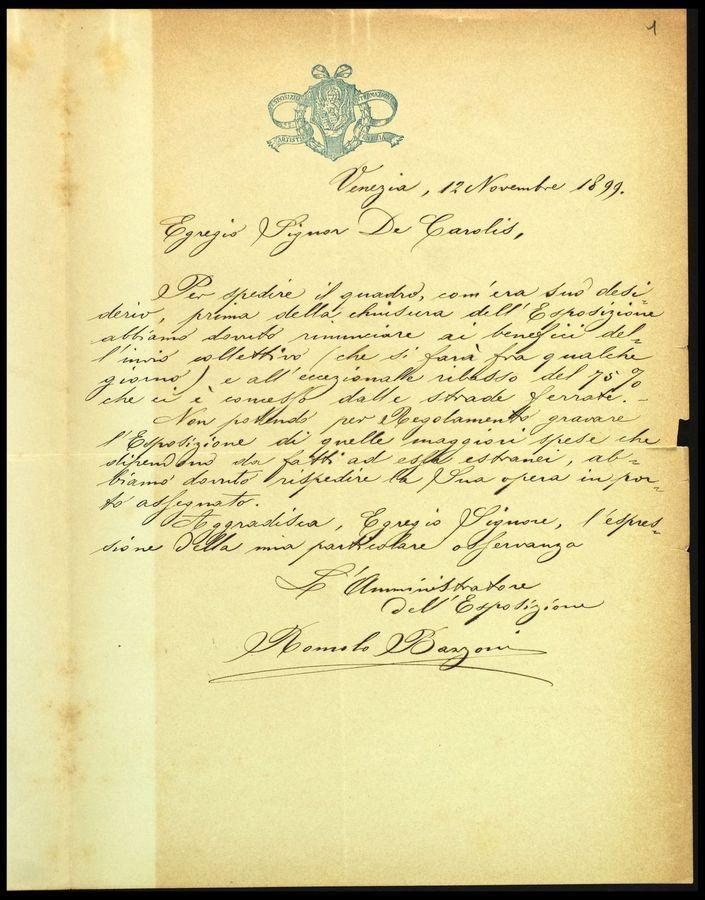 1
ESPOSIZIONE INTERNAZIONALE
ARTISTICA VENEZIA
Venezia, 12 Novembre 1899.
Egregio Signor De Carolis,
Per spedire il quadro, com'era suo desi=
derio, prima della chiusura dell'Esposizione
abbiamo dovuto rinunciare ai benefici del=
l'invio collettivo (che si farà fra qualche
giorno) e all'eccezionale ribasso del 75%
che ci è concesso dalle strade ferrate.-
Non potendo per Regolamento gravare
l'Esposizione di quelle maggiori spese che
dipendono da fatti ad essa estranei, ab=
biamo dovuto rispedire la Sua opera in por=
to assegnato.
Aggradisca, Egregio Signore, l'espres=
sione della mia particolare osservanza
L'Amministratore
dell'Esposizione
Romolo Bazzoni